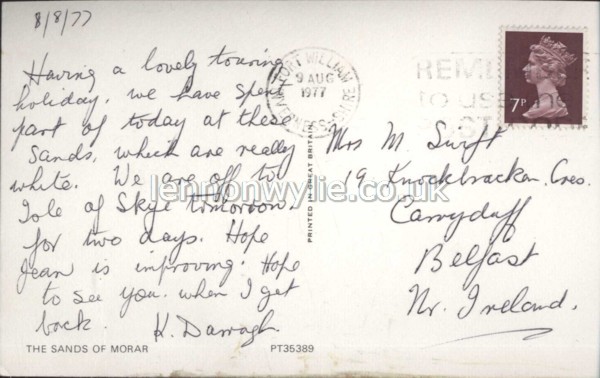 8/8/77
Having a lovely touring
holiday. We have spent
part of today at these
Sands, which are really
white. We are off to
Isle of Skye tomorrow
for two days. Hope
Jean is improving. Hope
to see you when I get
back. K. Darragh.
THE SANDS OF MORAR
PT35389
PRINTED IN GREAT BRITAIN
FORT WILLIAM
9 AUG
1977
INVERNESS-SHIRE
REM
to use
7P
Mrs M Swift
19 Knockbracken Cres.
Carryduff
Belfast
Nr. Ireland.
lennonwylie.co.uk